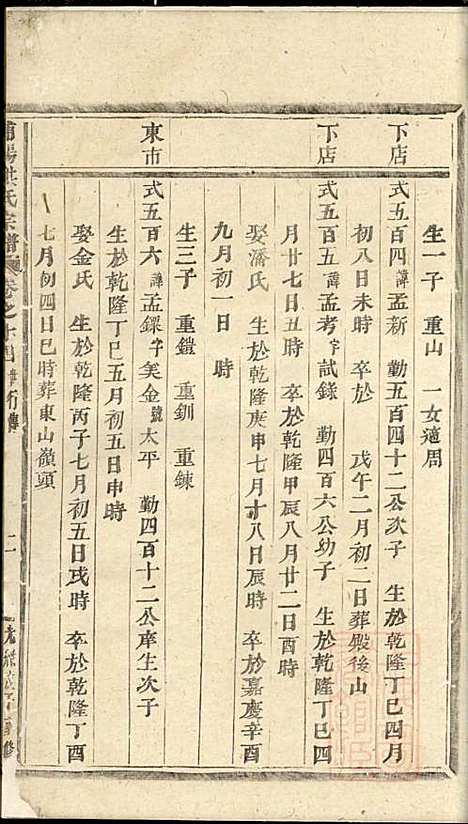 生一子 重山 一女適周
下店
式五百四諱孟新 勤五百四十二公次子 生於乾隆丁巳四月
初八日未時 卒於 戊午二月初二日葬殿後山
下店
式五百五諱孟考字試錄 勤四百六公幼子 生於乾隆丁巳四
月廿七日丑時 卒於乾隆甲辰八月廿二日酉時
娶潘氏 生於乾隆庚申七月十八日辰時 卒於嘉慶辛酉
九月初一日 時
生三子 重鎧 重釧 重鍊
東市
式五百六諱孟鎳字美金號太平 勤四百十二公庠生次子
生於乾隆丁巳五月初五日申時
娶金氏 生於乾隆丙子七月初五日戌時 卒於乾隆丁酉
七月初四日巳時葬東山嶺頭
陽洪氏宗譜 卷之十四 二